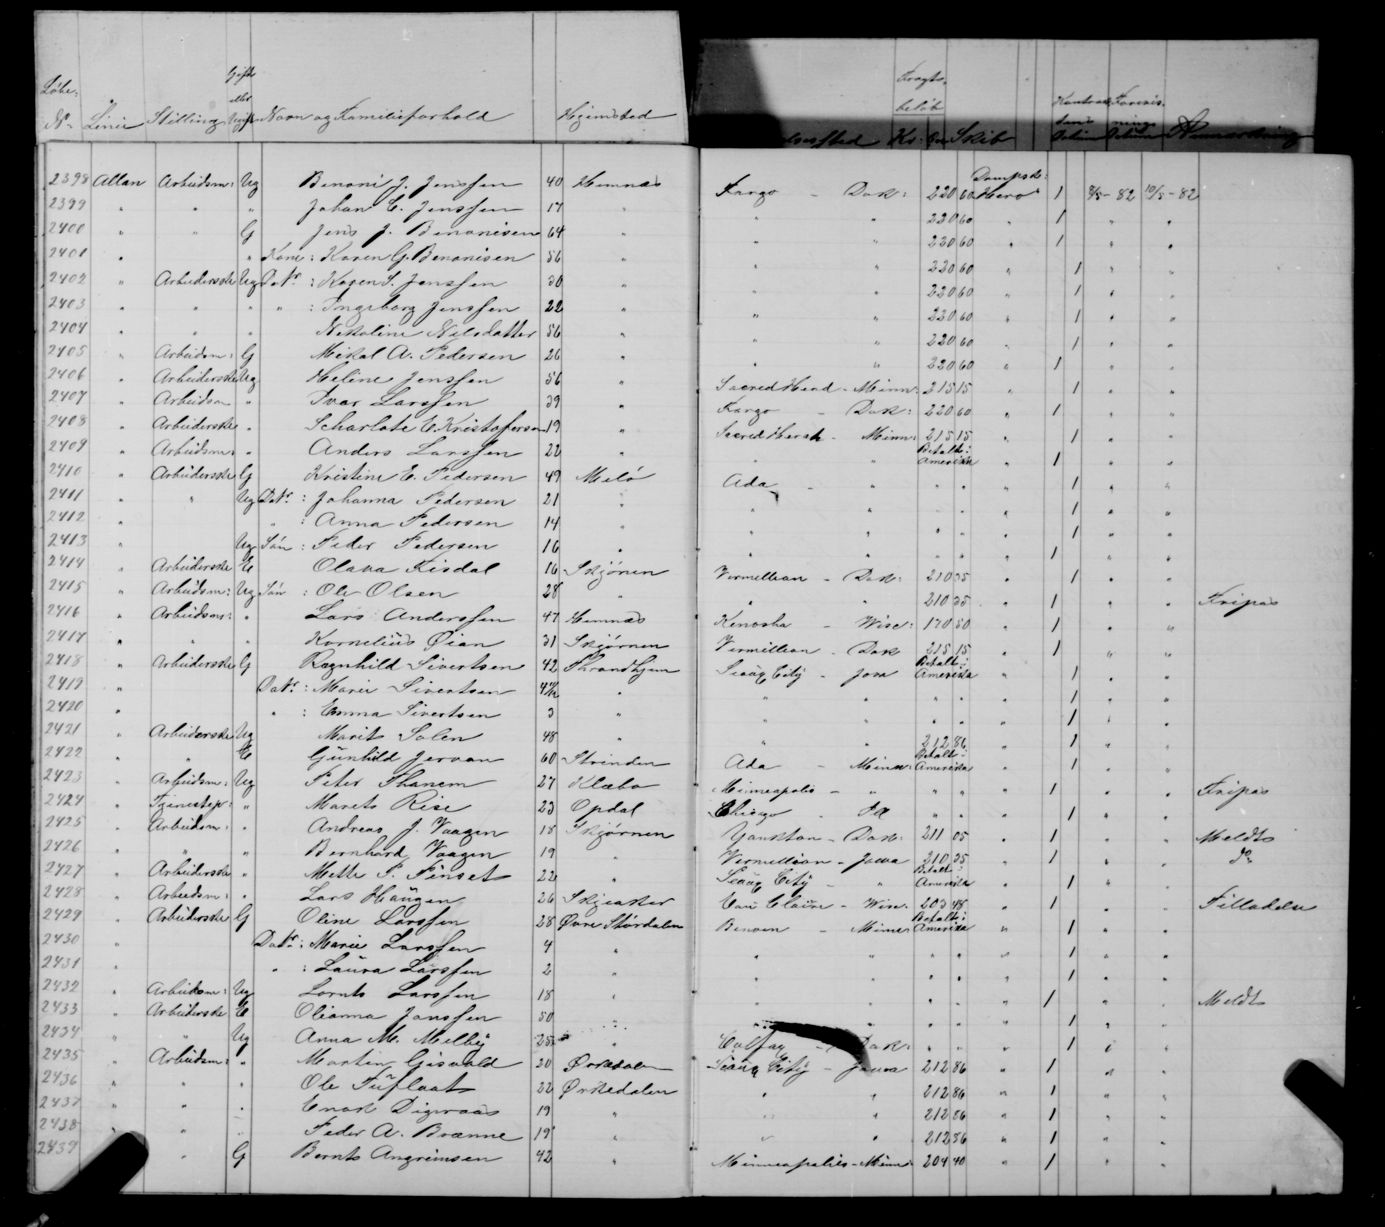 Løbe- Gift Fragt-
eller beløb Kontra- Forevis-
No Linie Stilling Ugift Navn og Familieforhold Hjemsted Kr. Skib Datum Datum Anmærkning
2398 Allan Arbeidsm: Ug Benoni J. Jenssen 40 Hemnæs Fargo - Dak: 220 60 Dampsk: Hero 1 9/5-82 10/5-82
2399 " " " Johan E. Jenssen 17 " " " 220 60 " 1 " "
2400 " " G Jens J. Benonisen 64 " " " 220 60 " 1 " "
2401 " " Kone: Karen G. Benonisen 56 " " " 220 60 " 1 " "
2402 " Arbeiderske Ug Datr: Kagen S. Jenssen 30 " " " 220 60 " 1 " "
2403 " " " " : Ingeborg Jenssen 22 " " " 220 60 " 1 " "
2404 " " " Nekoline Nilsdatter 56 " " " 220 60 " 1 " "
2405 " Arbeidsm: G Mikal A. Pedersen 26 " " " 220 60 " 1 " "
2406 " Arbeiderske Ug Heline Jenssen 56 " Sacred Head - Minn: 215 15 " 1 " "
2407 " Arbeidsm " Ivar Larssen 39 " Fargo - Dak: 220 60 " 1 " "
2408 " Arbeiderske " Scharlote E. Kristofersen 19 " Minn: 215 15 " 1 " "
2409 " Arbeidsm: " Anders Larssen 22 " " " Betalt i Amerika " 1 " "
2410 " Arbeiderske G Kristine E. Pedersen 49 Melø Ada - " " " " 1 " "
2411 " " Ug Datr: Johanna Pedersen 21 " " " " " " 1 " "
2412 " " : Anna Pedersen 14 " " " " " " 1 " "
2413 " Ug Søn: Peder Pedersen 16 " " " " " " 1 " "
2414 " Arbeiderske E Olava Kisdal 16 Skjørnen Vermellian - Dak: 210 35 " 1 " "
2415 " Arbeidsm: Ug Søn: Ole Olsen 28 " " " 210 35 " 1 " " Fripas
2416 " Arbeidsm: " Lars Anderssen 47 Hemnæs Kenosha - Wisc: 170 50 " 1 " "
2417 " " " Kornelius Øian 31 Skjørnen Vermellian - Dak 215 15 " 1 " "
2418 " Arbeiderske G Ragnhild Sivertsen 42 Throndhjem Sioux City - Jova Betalt i Amerika " 1 " "
2419 " Datr: Marie Sivertsen " " " " " " 1 " "
2420 " " : Emma Sivertsen 3 " " " " " " 1 " "
2421 " Arbeiderske Ug Marit Solen 48 " " " 212 86 " 1 " "
2422 " " E Gunhild Jervan 60 Strinden Ada - Minn: Betalt i Amerika " 1 " "
2423 " Arbeidsm: Ug Peter Thanem 27 Klæbo Minneapolis - " " " " 1 " " Fripas
2424 " Tjenestep: " Marets Rise 23 Opdal Chicago - " " " 1 " "
2425 " Arbeidsm: " Andreas J. Vaagen 18 Skjørnen Yankton - Dak: 211 05 " 1 " " Meldt
2426 " " " Bernhard Vaagen 19 " Vermellian - Jowa 210 35 " 1 " " do
2427 " Arbeiderske " Mette P. Finset 22 " Sioux City - " Betalt i Amerika " 1 " "
2428 " Arbeidsm: " Lars Haugen 26 Eau Claire - Wisc. 203 48 " 1 " "
2429 " Arbeiderske G Oline Larssen 28 Øvre Stördalen Benson - Minn: Betalt i Amerika " 1 " "
2430 " Datr: Marie Larssen 4 " " " " " " 1 " "
2431 " " : Laura Larssen 2 " " " " " " 1 " "
2432 " Arbeidsm: Ug Lornts Larssen 18 " " " " " " 1 " " Meldt
2433 " Arbeiderske E Olianna Janssen 50 " " " " " 1 " "
2434 " " Ug Anna M. Melby 25 " Colfax - Dak: " " " 1 " "
2435 " Arbeidsm: " Martin Gisvold 20 Ørkedalen Sioux City - Jowa 212 86 " 1 " "
2436 " " " Ole Tuflaat 22 Ørkedalen " " 212 86 " 1 " "
2437 " " " Enok Digeraas 19 " " " 212 86 " 1 " "
2438 " " Peder A. Brænne 19 " " " 212 86 " 1 " "
2439 " G Bernts Angrimsen 42 " Minneapolis - Minn: 204 40 " 1 " "